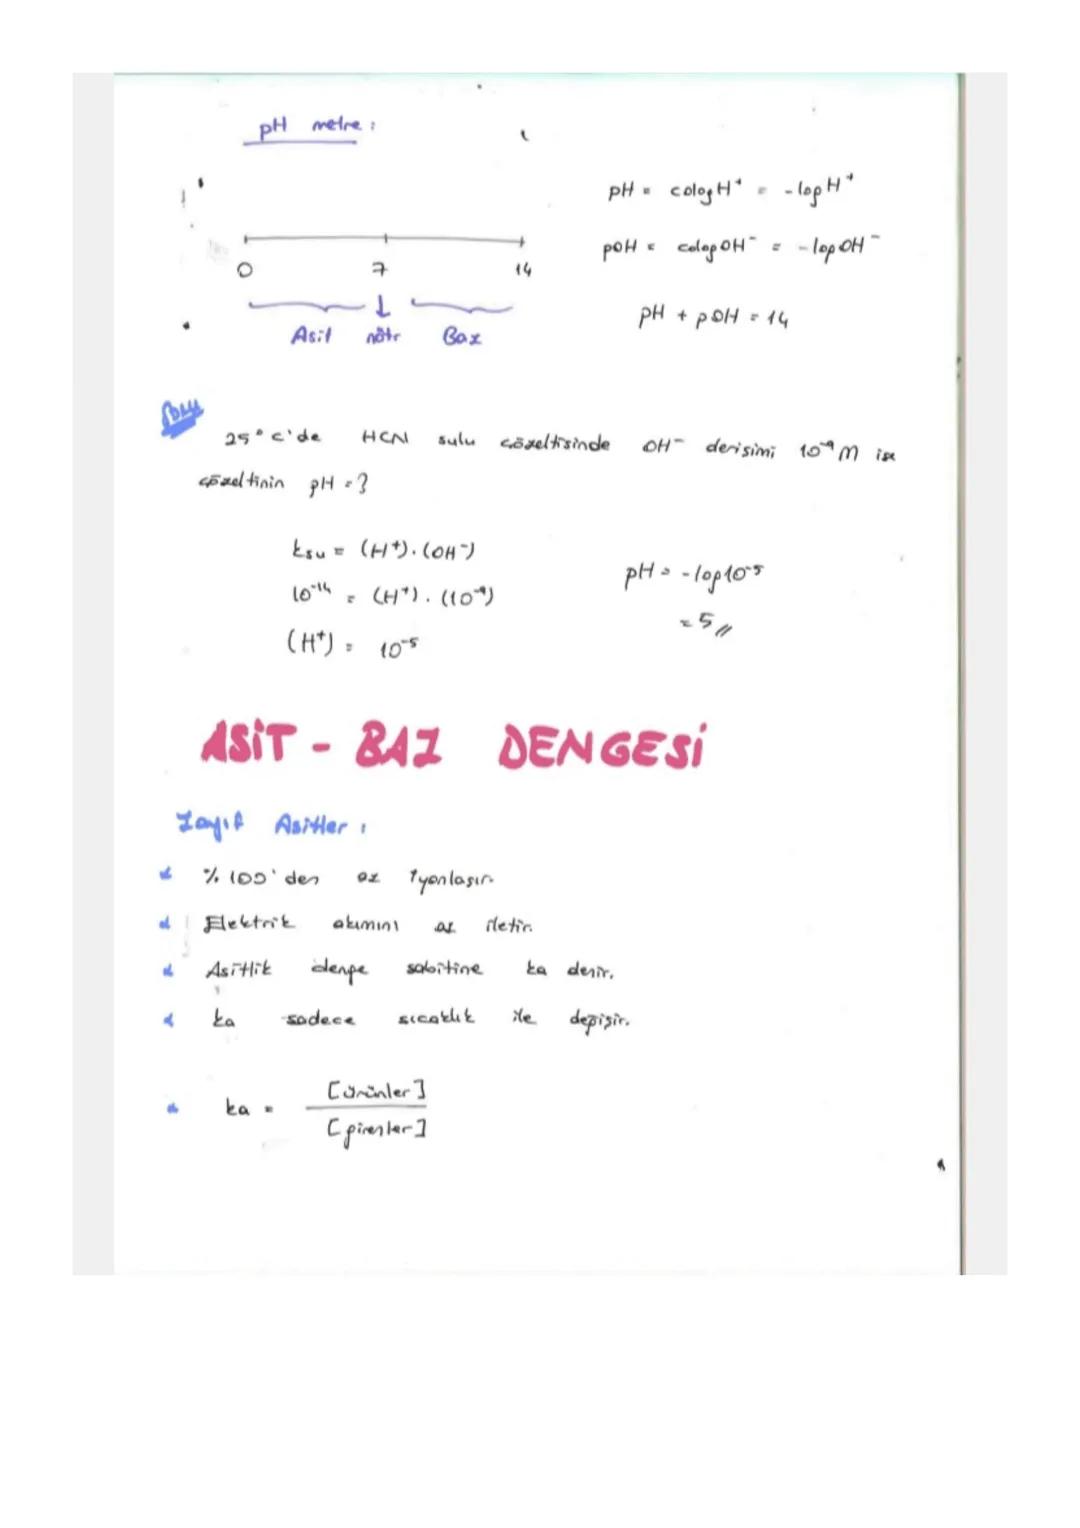 pH metre:
pH = colog H⁺ = -log H⁺
pOH = colog OH⁻ = -log OH⁻
pH + pOH = 14
0 7 14
Asit nötr Baz
Soru
25°C'de HCN sulu çözeltisinde OH⁻ derişimi 10⁻⁹ M ise
çözeltinin pH = ?
ksu = (H⁺).(OH⁻)
10⁻¹⁴ = (H⁺).(10⁻⁹)
(H⁺) = 10⁻⁵
pH = -log10⁻⁵
= 5 //
ASİT - BAZ DENGESİ
Zayıf Asitler:
% 100'den az iyonlaşır.
Elektrik akımını az iletir.
Asitlik denge sabitine ka denir.
ka sadece sıcaklık ile değişir.
ka = [ürünler] / [girenler]